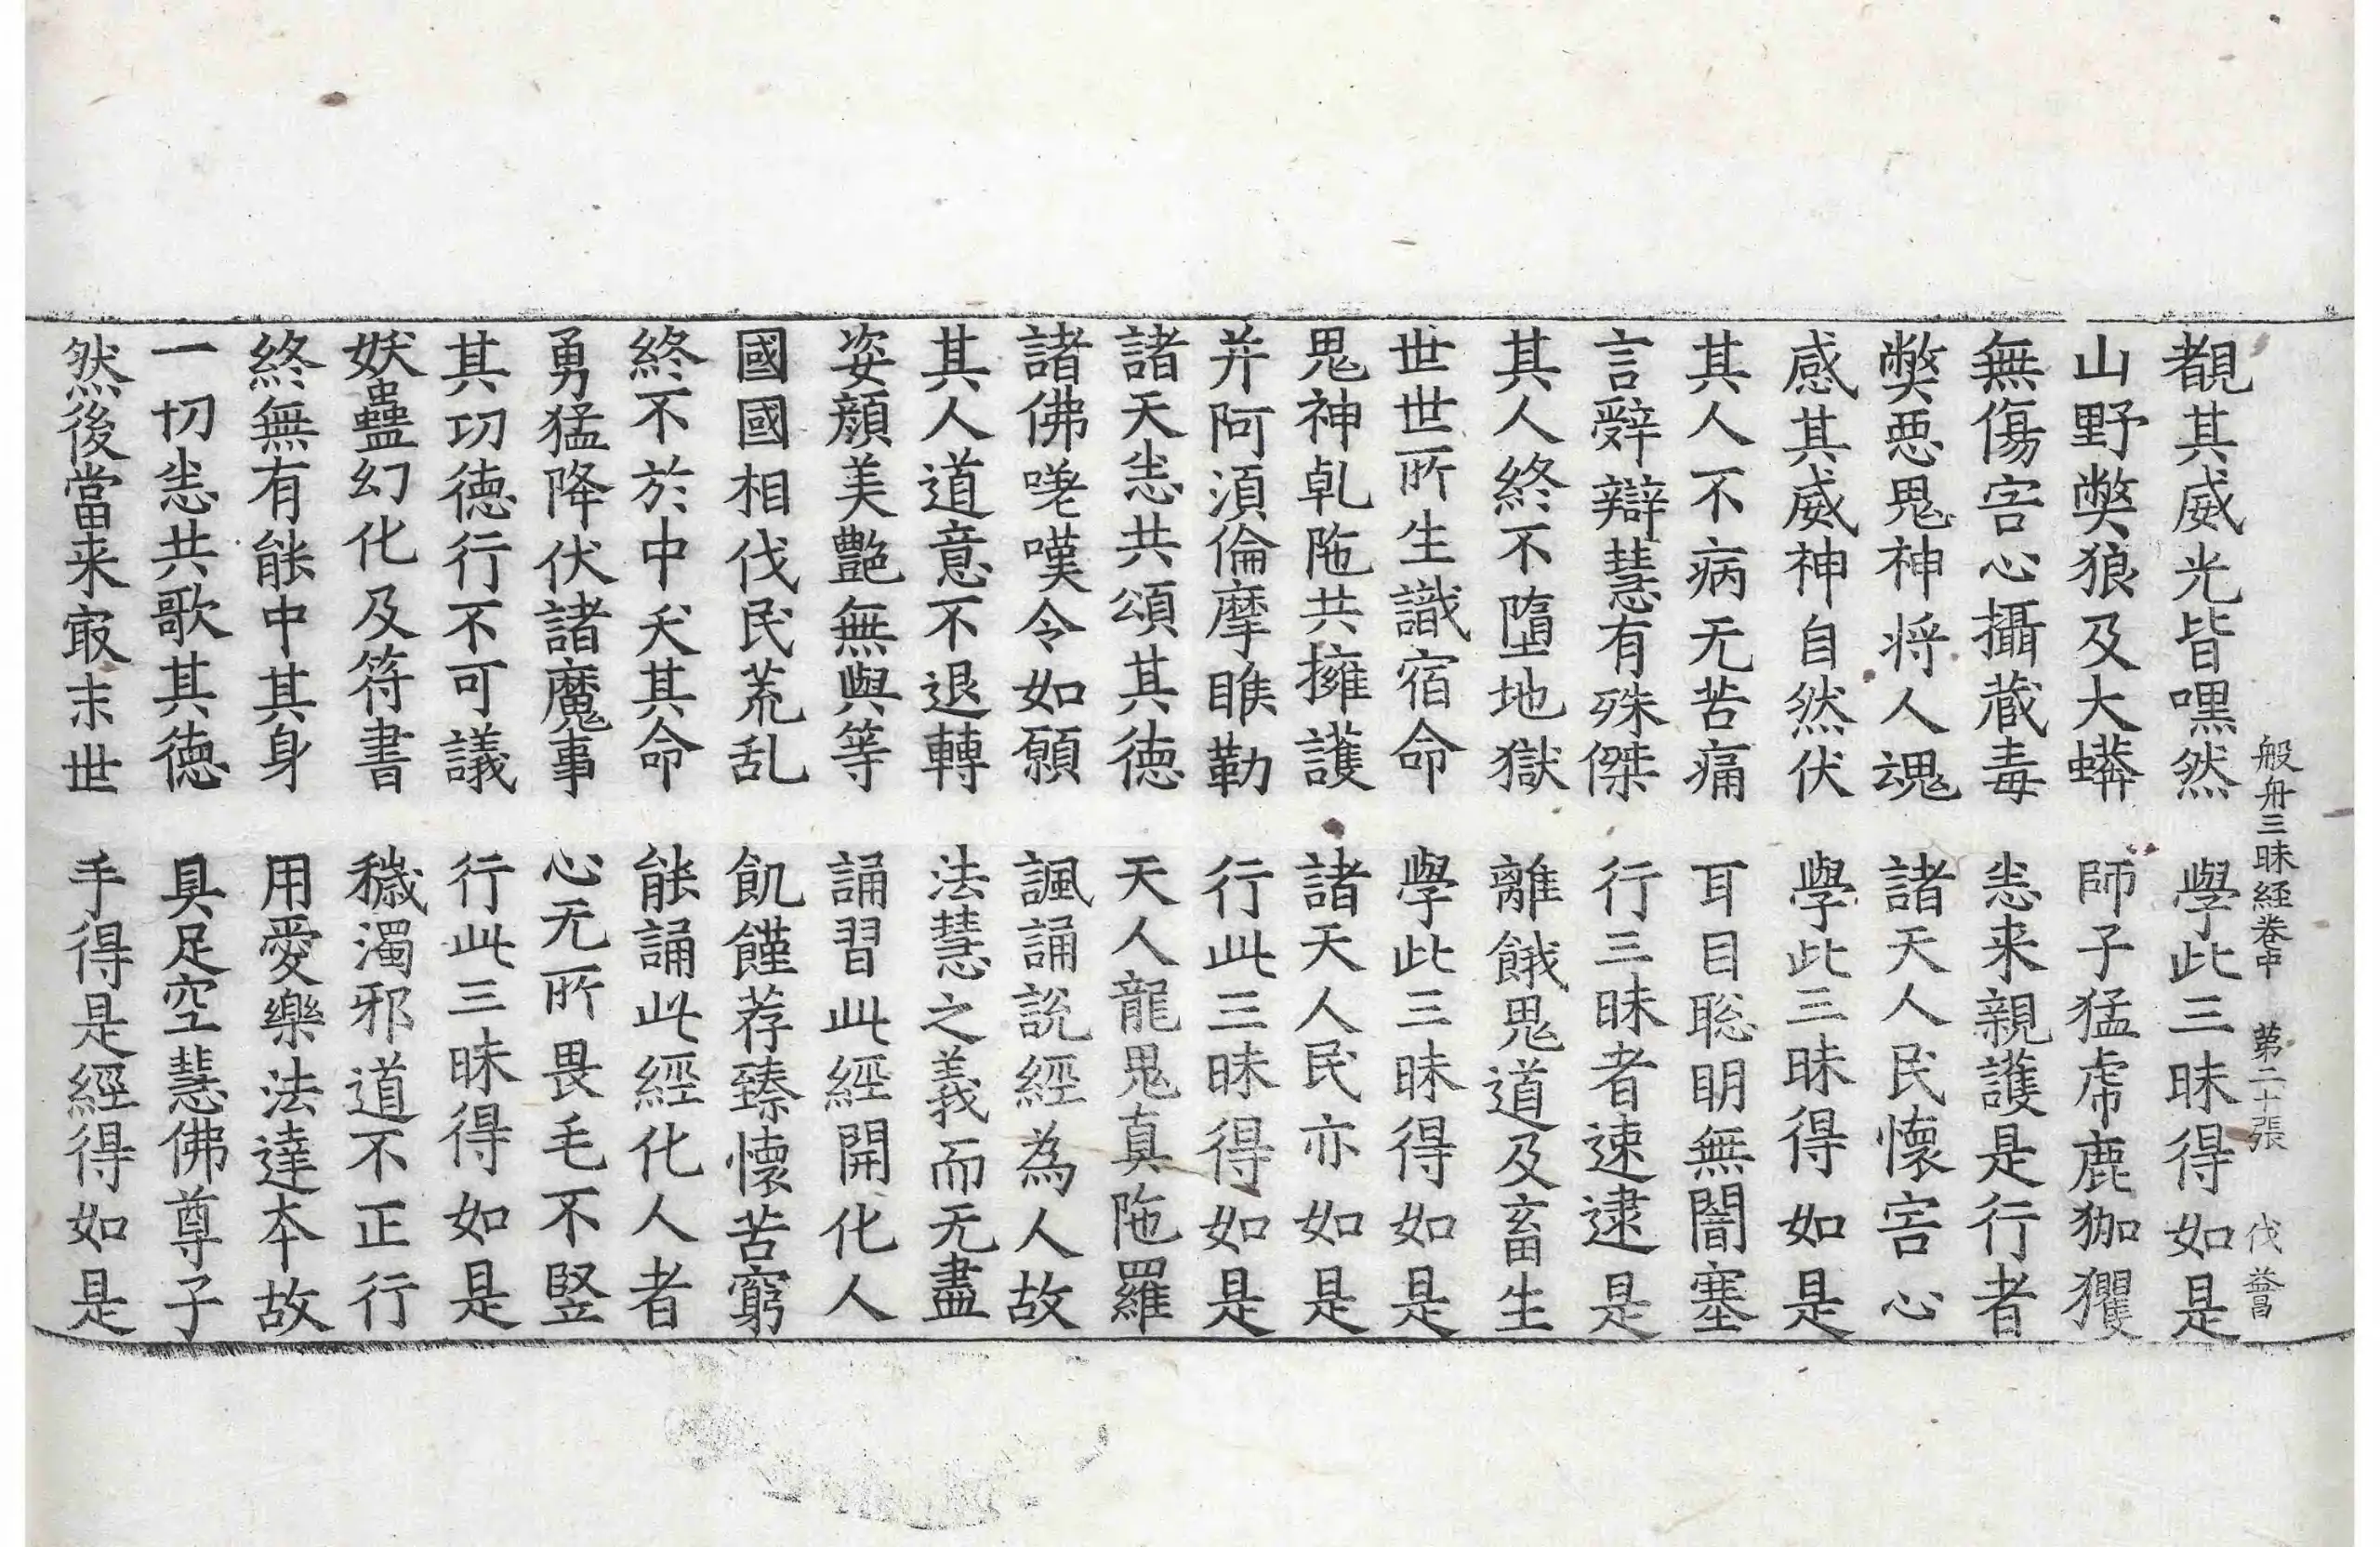 般舟三昧經卷中　第二十張　伐
覩其威光皆嘿然　學此三昧得如是
山野弊狼及大蟒　師子猛虎鹿狐玃
無傷害心攝藏毒　悉来親護是行者
弊惡鬼神将人魂　諸天人民懷害心
感其威神自然伏　學此三昧得如是
其人不病无苦痛　耳目聡明無闇塞
言辭辯慧有殊傑　行三昧者速逮是
其人終不墮地獄　離餓鬼道及畜生
世世所生識宿命　學此三昧得如是
鬼神乹陁共擁護　諸天人民亦如是
并阿須倫摩睺勒　行此三昧得如是
諸天悉共頌其徳　天人龍鬼真陁羅
諸佛嗟嘆令如願　諷誦說經為人故
其人道意不退轉　法慧之義而无盡
姿顏美艶無與等　誦習此經開化人
國國相伐民荒乱　飢饉荐臻懷苦窮
終不於中夭其命　能誦此經化人者
勇猛降伏諸魔事　心无所畏毛不竪
其功徳行不可議　行此三昧得如是
妖蠱幻化及符書　穢濁邪道不正行
終無有能中其身　用愛樂法達本故
一切悉共歌其徳　具足空慧佛尊子
然後當来㝡末世　手得是經得如是